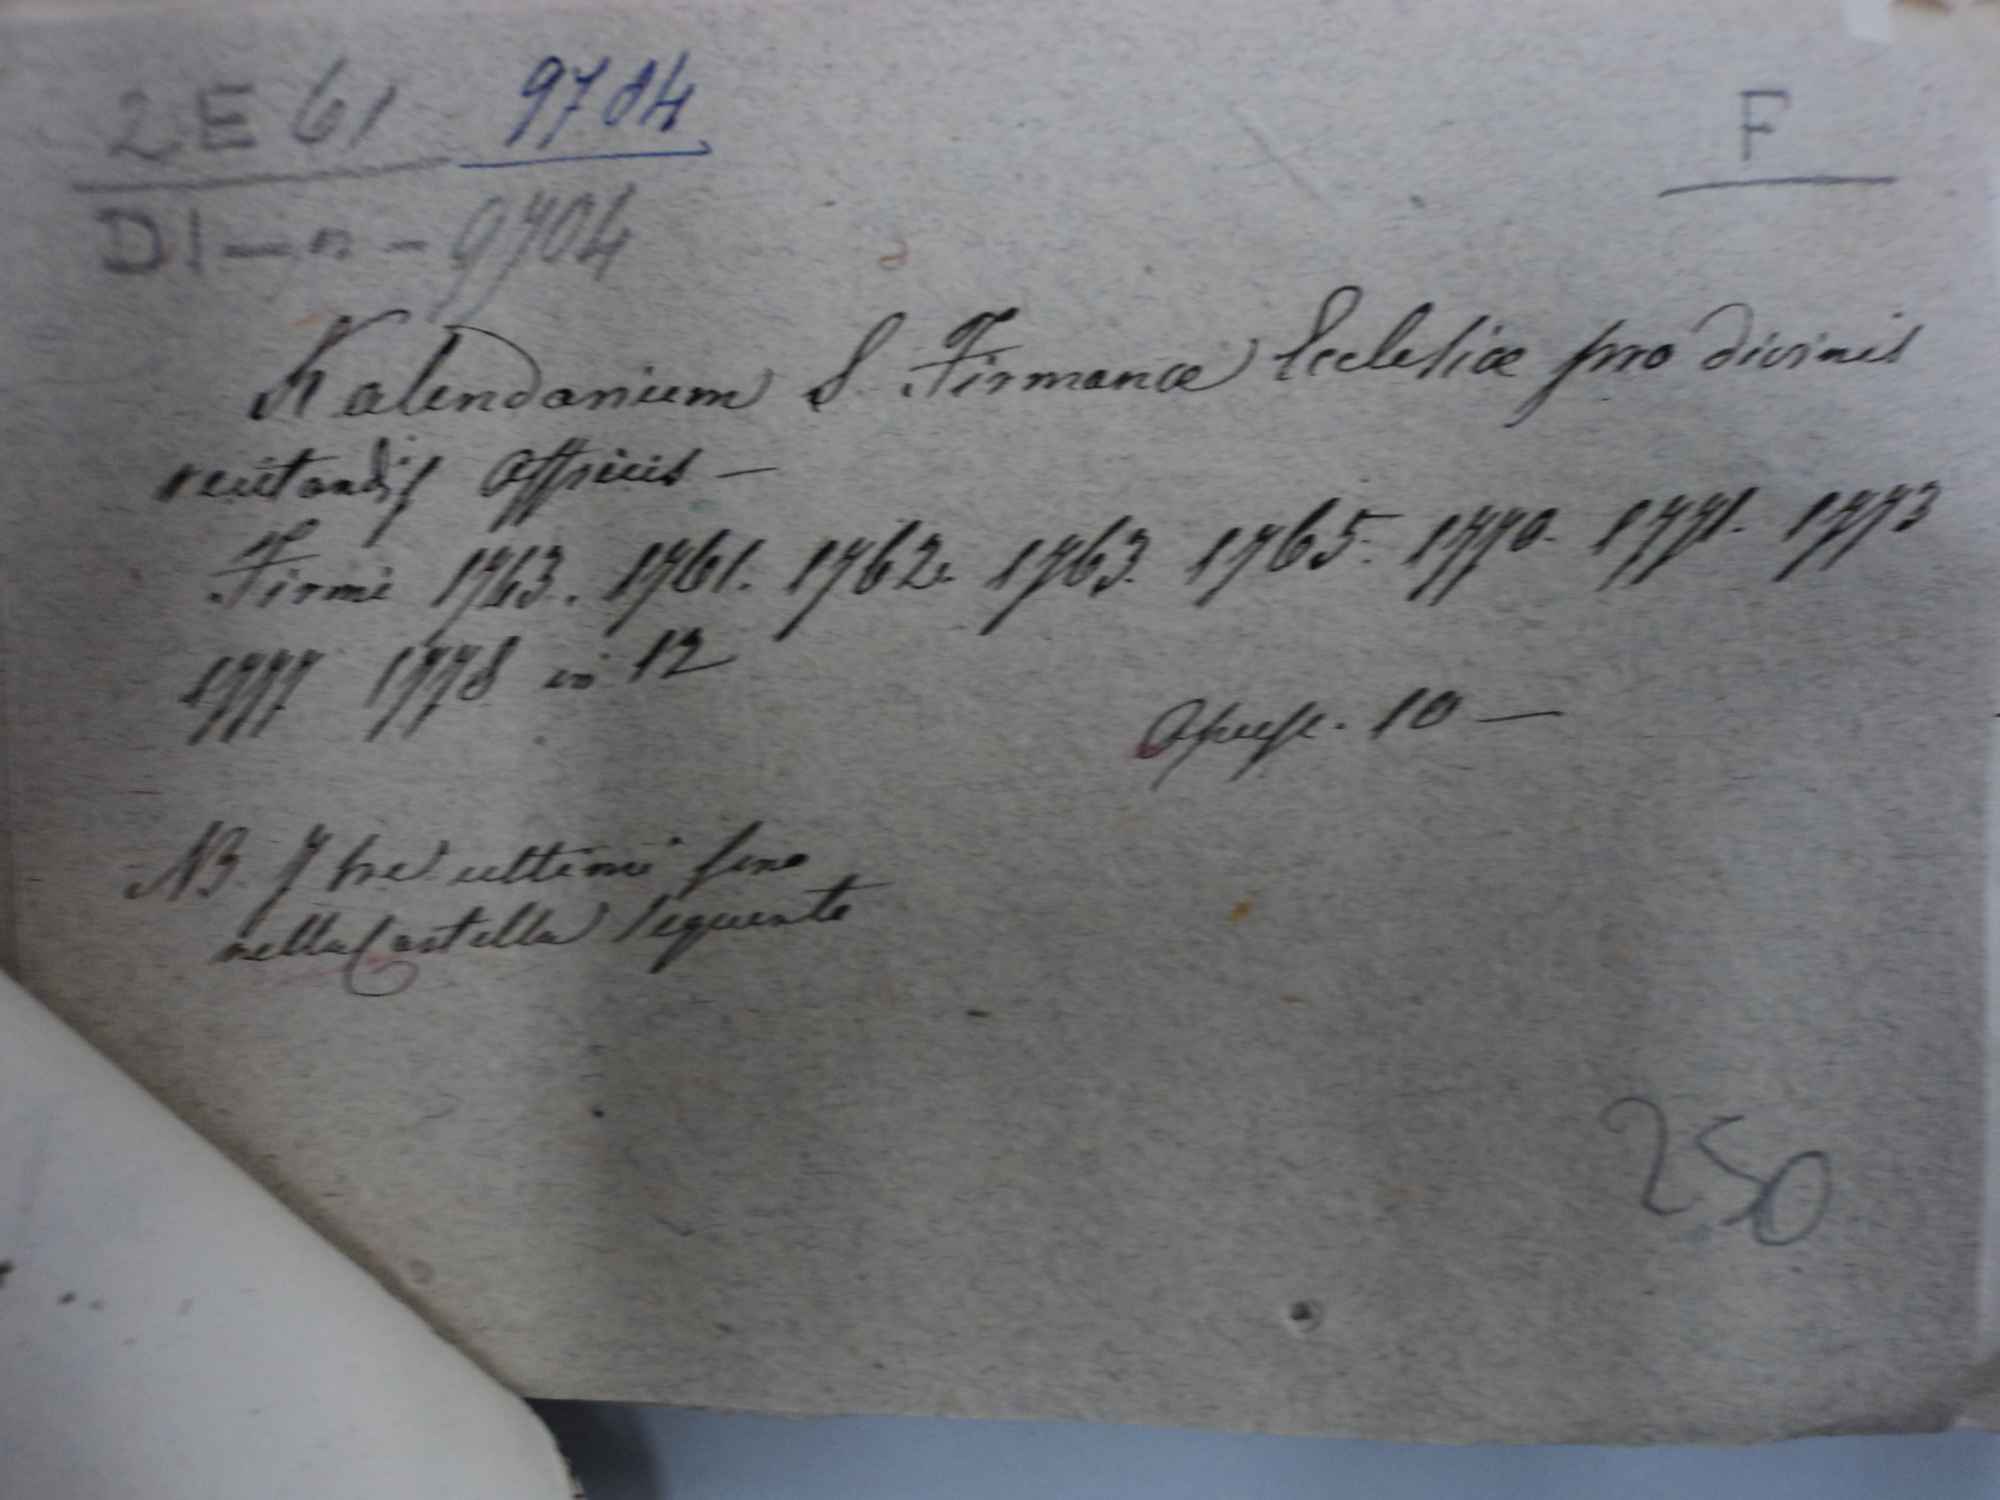 2 E 61 9704
F
D I — n - 9704
Kalendarium S. Firmanæ Ecclesiæ pro divinis
recitandis Officiis —
Firmi 1743. 1761. 1762. 1763. 1765. 1770. 1771. 1773
1777 1778 in 12
Opusc. 10 —
NB. I tre ultimi sono
nella Cartella seguente
250